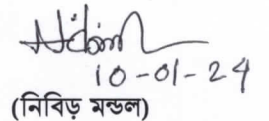 10-01-24
(নিবিড় মন্ডল)